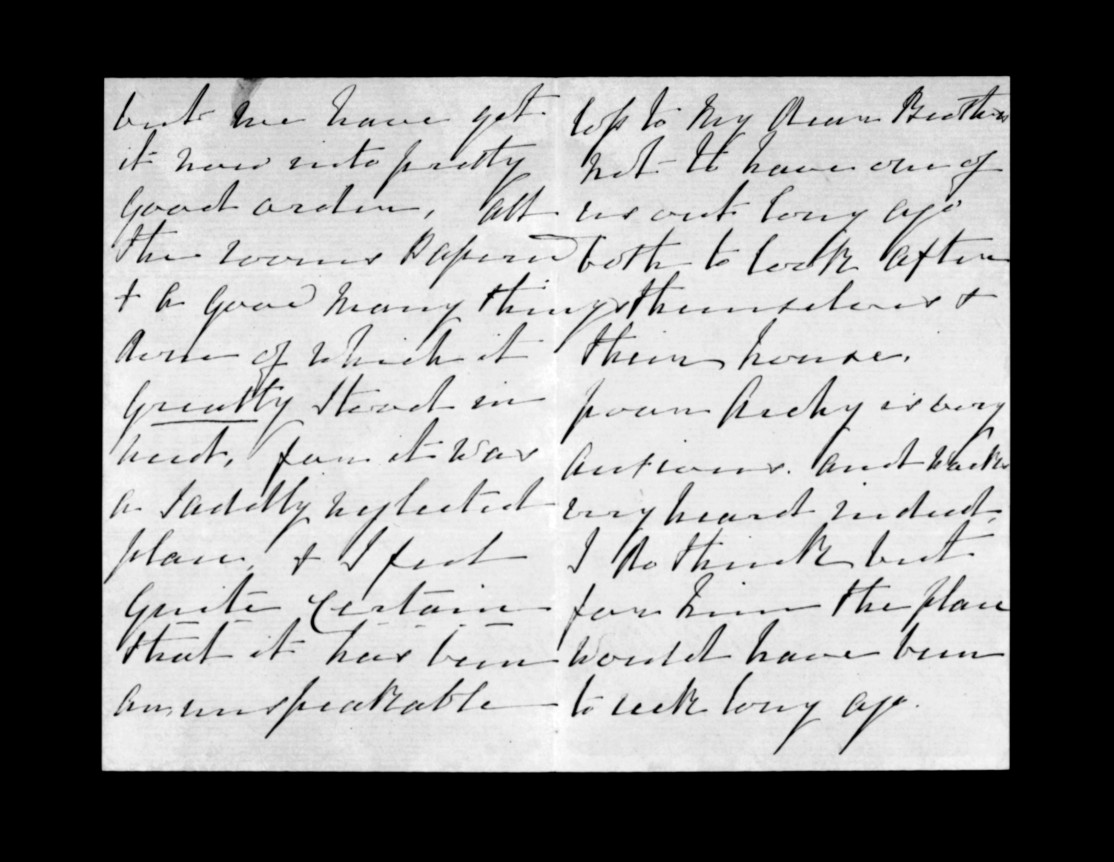 but we have got
it now into pretty
good order, all
the rooms Papered
& a good many things
done of which it
greatly stood in
need, for it was
a sadly neglected
place, & I feel
quite certain
that it has been
an unspeakable
loss to my dear Brothers
not to have one of
us out long ago
both to look after
themselves &
their house.
poor Archy is very
anxious. and works
very heard indeed,
I do think but
for him the place
would have been
to seek long ago.